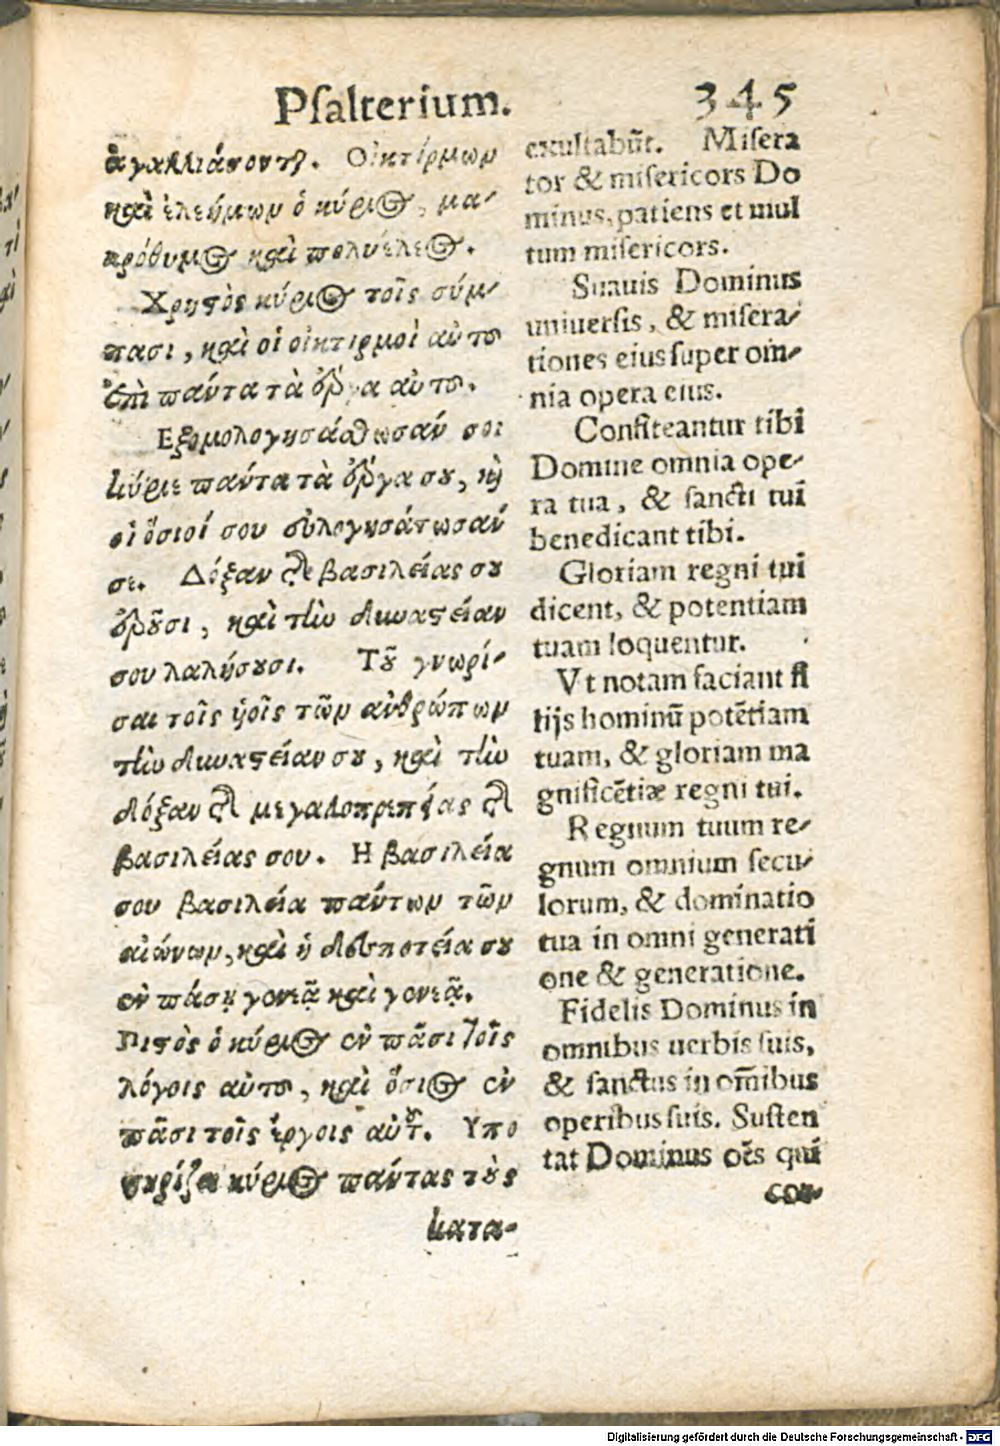 Psalterium. 345
ἀγαλλιάσονται. Οἰκτίρμων
καὶ ἐλεήμων ὁ κύριος, μα-
κρόθυμος καὶ πολυέλεος.
Χρηστὸς κύριος τοῖς σύμ-
πασι, καὶ οἱ οἰκτιρμοὶ αὐτοῦ
ἐπὶ πάντα τὰ ἔργα αὐτοῦ.
Εξομολογησάσθωσάν σοι
κύριε πάντα τὰ ἔργα σου, καὶ
οἱ ὅσιοί σου εὐλογησάτωσάν
σε. Δόξαν τῆς βασιλείας σου
ἐροῦσι, καὶ τὴν δυναστείαν
σου λαλήσουσι. Τοῦ γνωρί-
σαι τοῖς ἡοῖς τῶν ἀνθρώπων
τὴν δυναστείαν σου, καὶ τὴν
δόξαν τῆς μεγαλοπρεπείας τῆς
βασιλείας σου. Η βασιλεία
σου βασιλεία πάντων τῶν
αἰώνων, καὶ ἡ δεσποτεία σου
ἐν πάσῃ γενεᾷ καὶ γενεᾷ.
Πιστὸς ὁ κύριος ἐν πᾶσι τοῖς
λόγοις αὐτοῦ, καὶ ὅσιος ἐν
πᾶσι τοῖς ἔργοις αὐτοῦ. Υπο
στηρίζει κύριος πάντας τοὺς
κατα-
exultabũt. Misera
tor & misericors Do
minus, patiens et mul
tum misericors.
Suauis Dominus
uniuersis, & misera-
tiones eius super om-
nia opera eius.
Confiteantur tibi
Domine omnia ope-
ra tua, & sancti tui
benedicant tibi.
Gloriam regni tui
dicent, & potentiam
tuam loquentur.
Vt notam faciant fi
lijs hominũ potẽtiam
tuam, & gloriam ma
gnificẽtiæ regni tui.
Regnum tuum re-
gnum omnium secu-
lorum, & dominatio
tua in omni generati
one & generatione.
Fidelis Dominus in
omnibus uerbis suis,
& sanctus in om̃ibus
operibus suis. Susten
tat Dominus oẽs qui
cor-
Digitalisierung gefördert durch die Deutsche Forschungsgemeinschaft - DFG